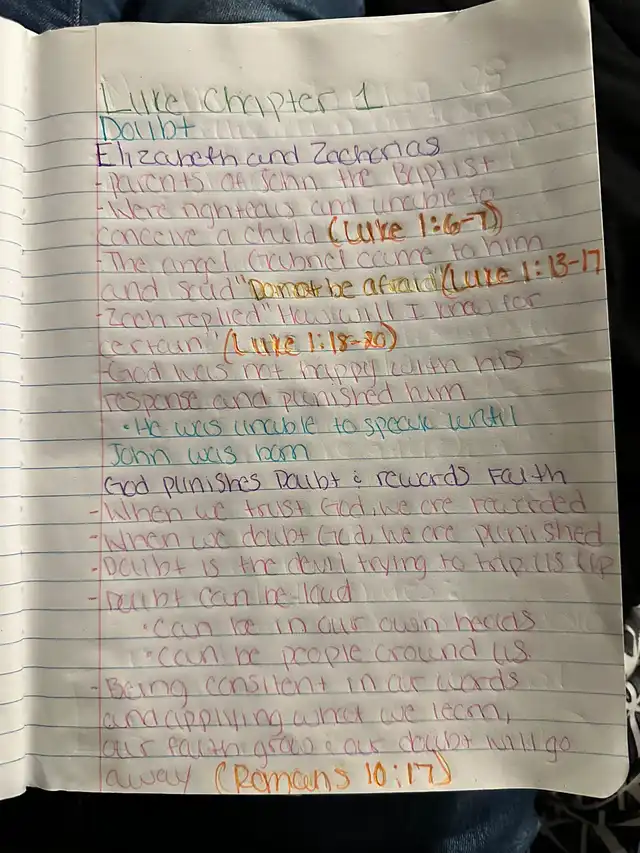 Luke Chapter 1
Doubt
Elizabeth and Zacharias
- Parents of John the Baptist
- Were righteous and unable to
conceive a child (Luke 1:6-7)
- The angel Gabriel came to him
and said "Do not be afraid" (Luke 1:13-17
- Zech replied "How will I know for
certain" (Luke 1:18-20)
- God was not happy with his
response and punished him
• He was unable to speak until
John was born
God punishes Doubt & rewards Faith
- When we trust God, we are rewarded
- When we doubt God, we are punished
- Doubt is the devil trying to trip us up
- Doubt can be loud
• Can be in our own heads
• Can be people around us
- Being consistent in our words
and applying what we learn,
our faith grows & our doubt will go
away (Romans 10:17)